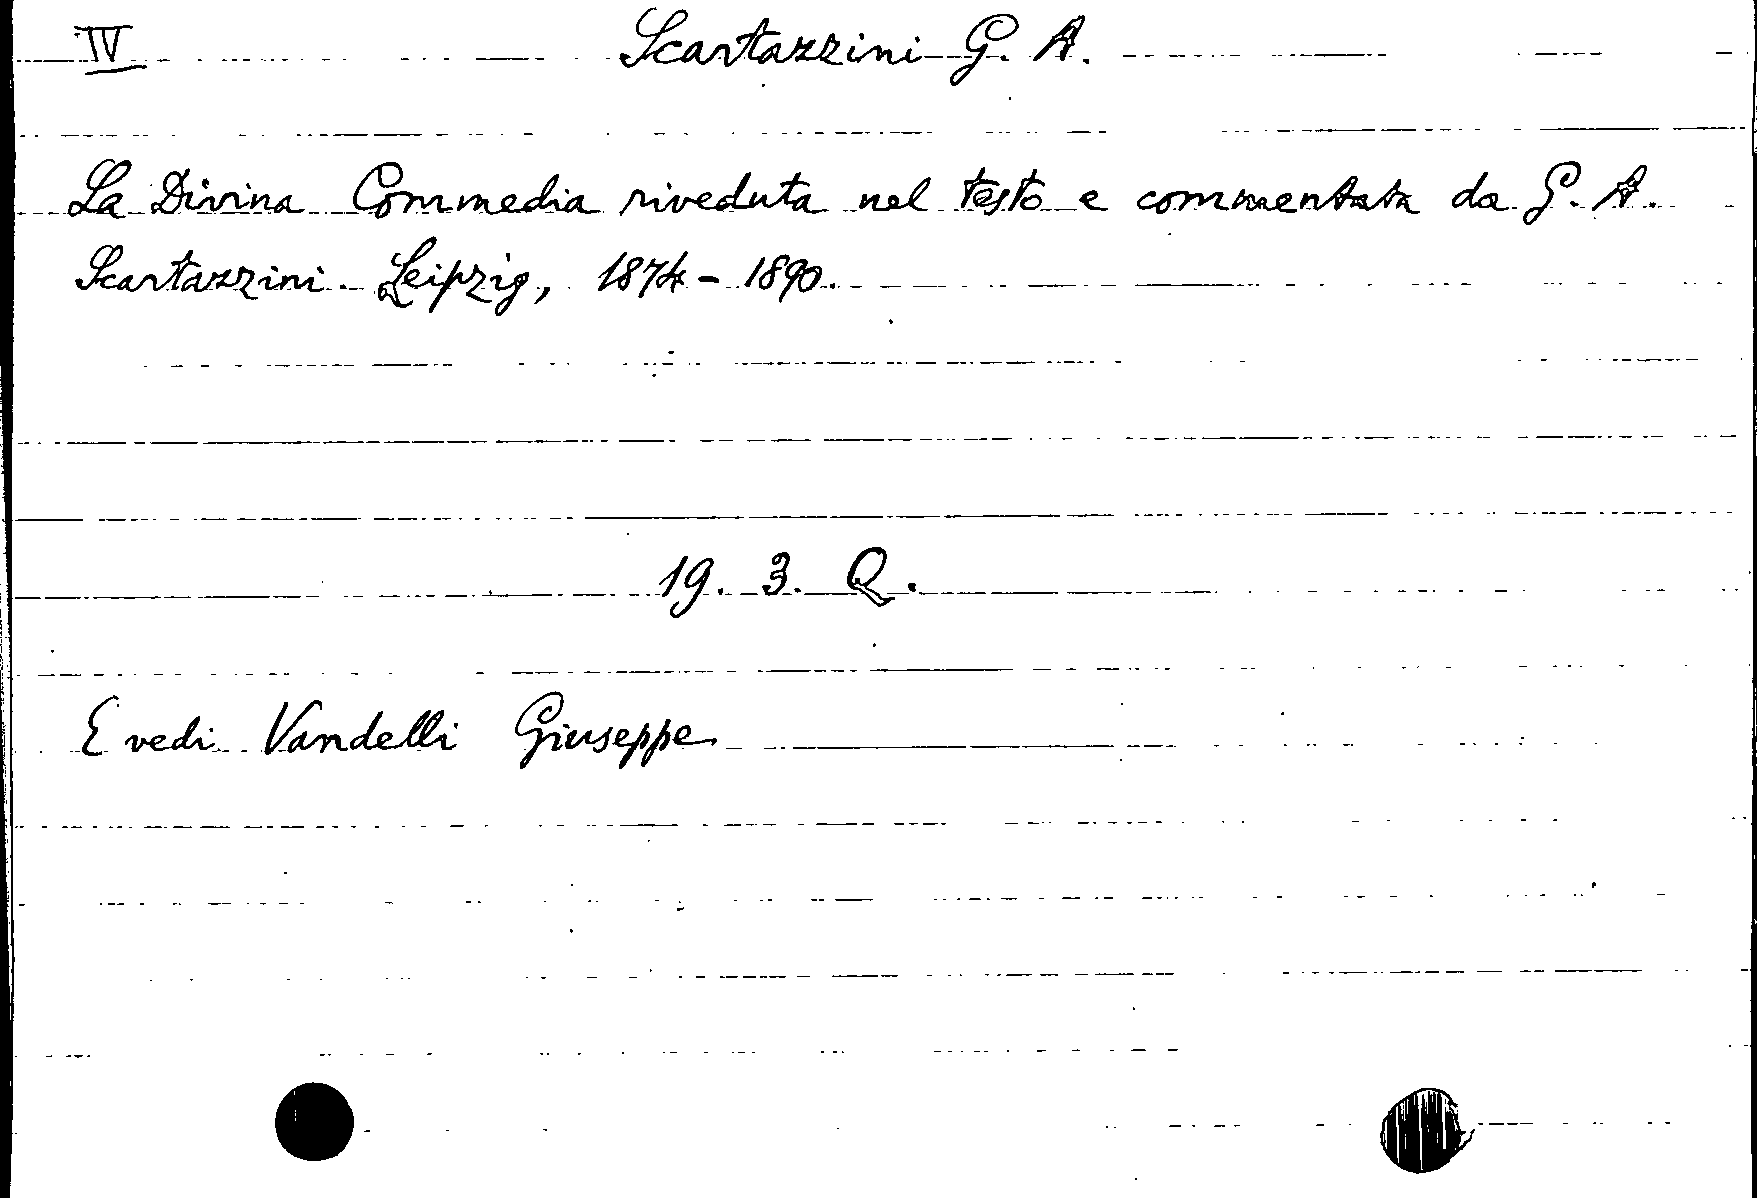 IV Scartazzini G. A.
La Divina Commedia riveduta nel testo e commentata da G. A.
Scartazzini. Leipzig, 1874 - 1890.
19. 3. Q.
E vedi Vandelli Giuseppe